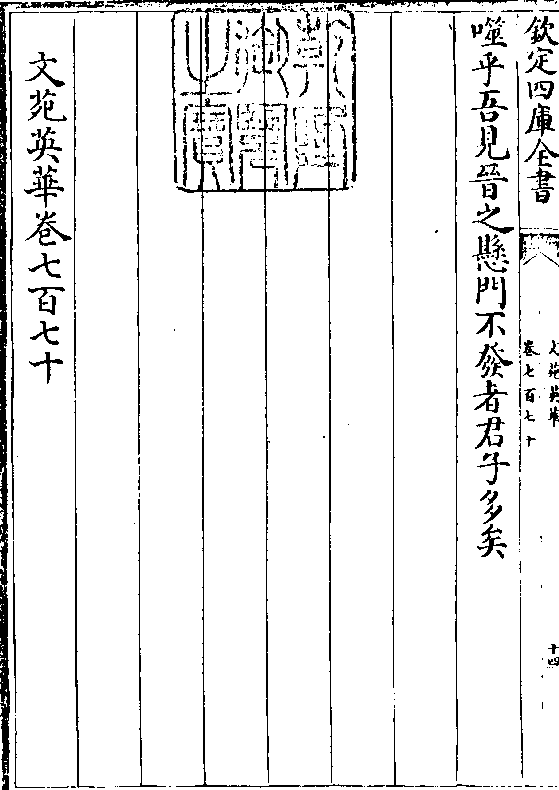 欽定四庫全書
文苑英華
卷七百七十
十四
噬乎吾見晉之懸門不發者君子多矣
乾隆御覽之寶
文苑英華卷七百七十